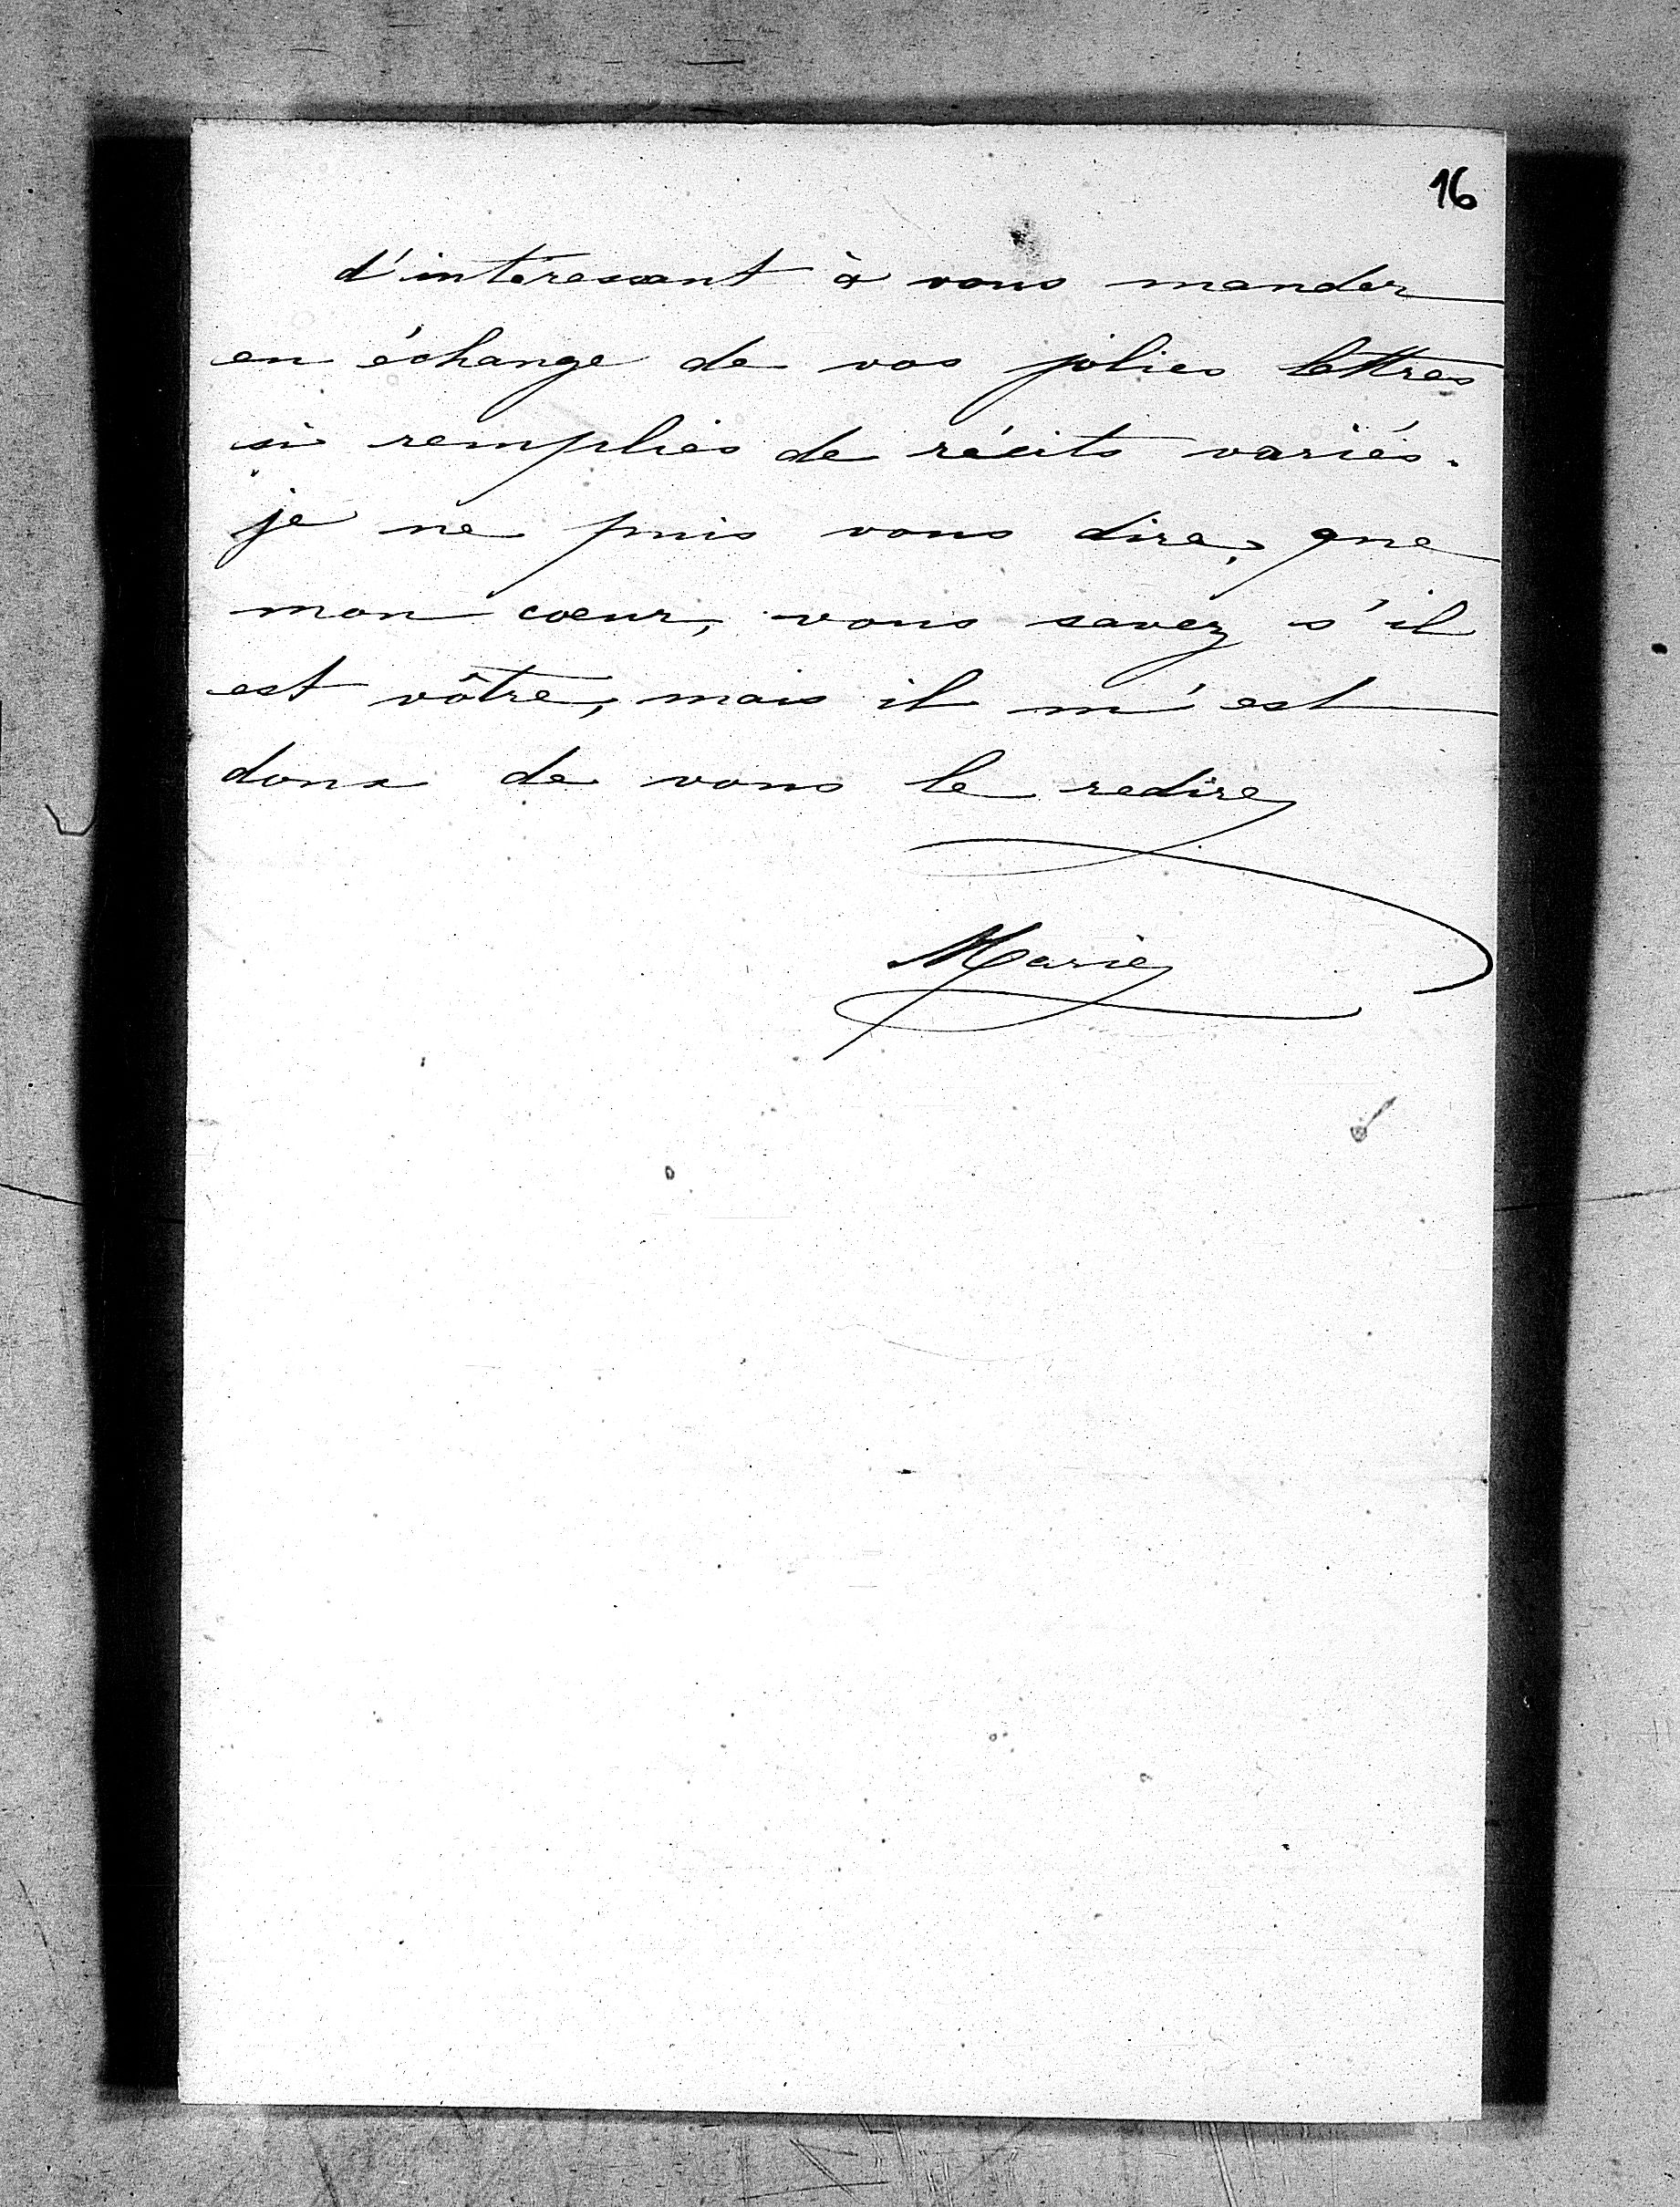 16
d'intéressant à vous mander
en échange de vos jolies lettres
si remplies de récits variés.
je ne puis vous dire, que
mon coeur, vous savez s'il
est vôtre, mais il m'est
doux de vous le redire
Marie